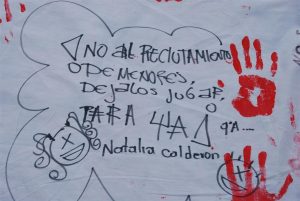 ¡NO AL RECLUTAMIENTO
DE MENORES,
DEJALOS JUGAR,
PARA YA! 9ºA...
Natalia Calderon